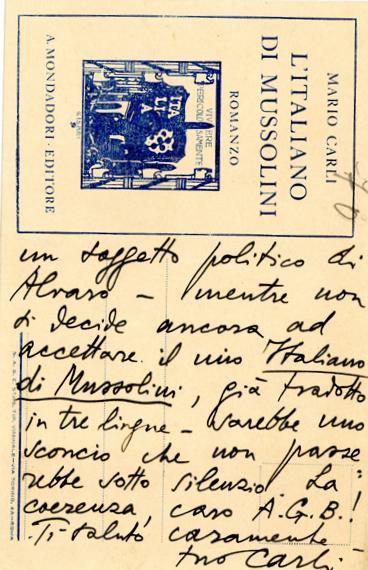 MARIO CARLI
L'ITALIANO
DI MUSSOLINI
ROMANZO
VIVERE
PERICOLOSAMENTE
ITA
LI
A
A. MONDADORI · EDITORE
un soggetto politico di
Alvaro – mentre non
si decide ancora ad
accettare il mio Italiano
di Mussolini, già tradotto
in tre lingue – sarebbe uno
sconcio che non passe
rebbe sotto silenzio. La
"coerenza", caso A.G.B.!
Ti saluto caramente
tuo Carli